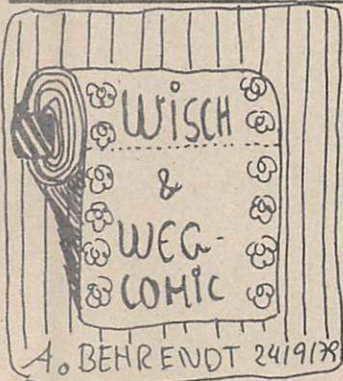 WiSCH
&
WEG-
COMiC
A. BEHRENDT 24/9/79